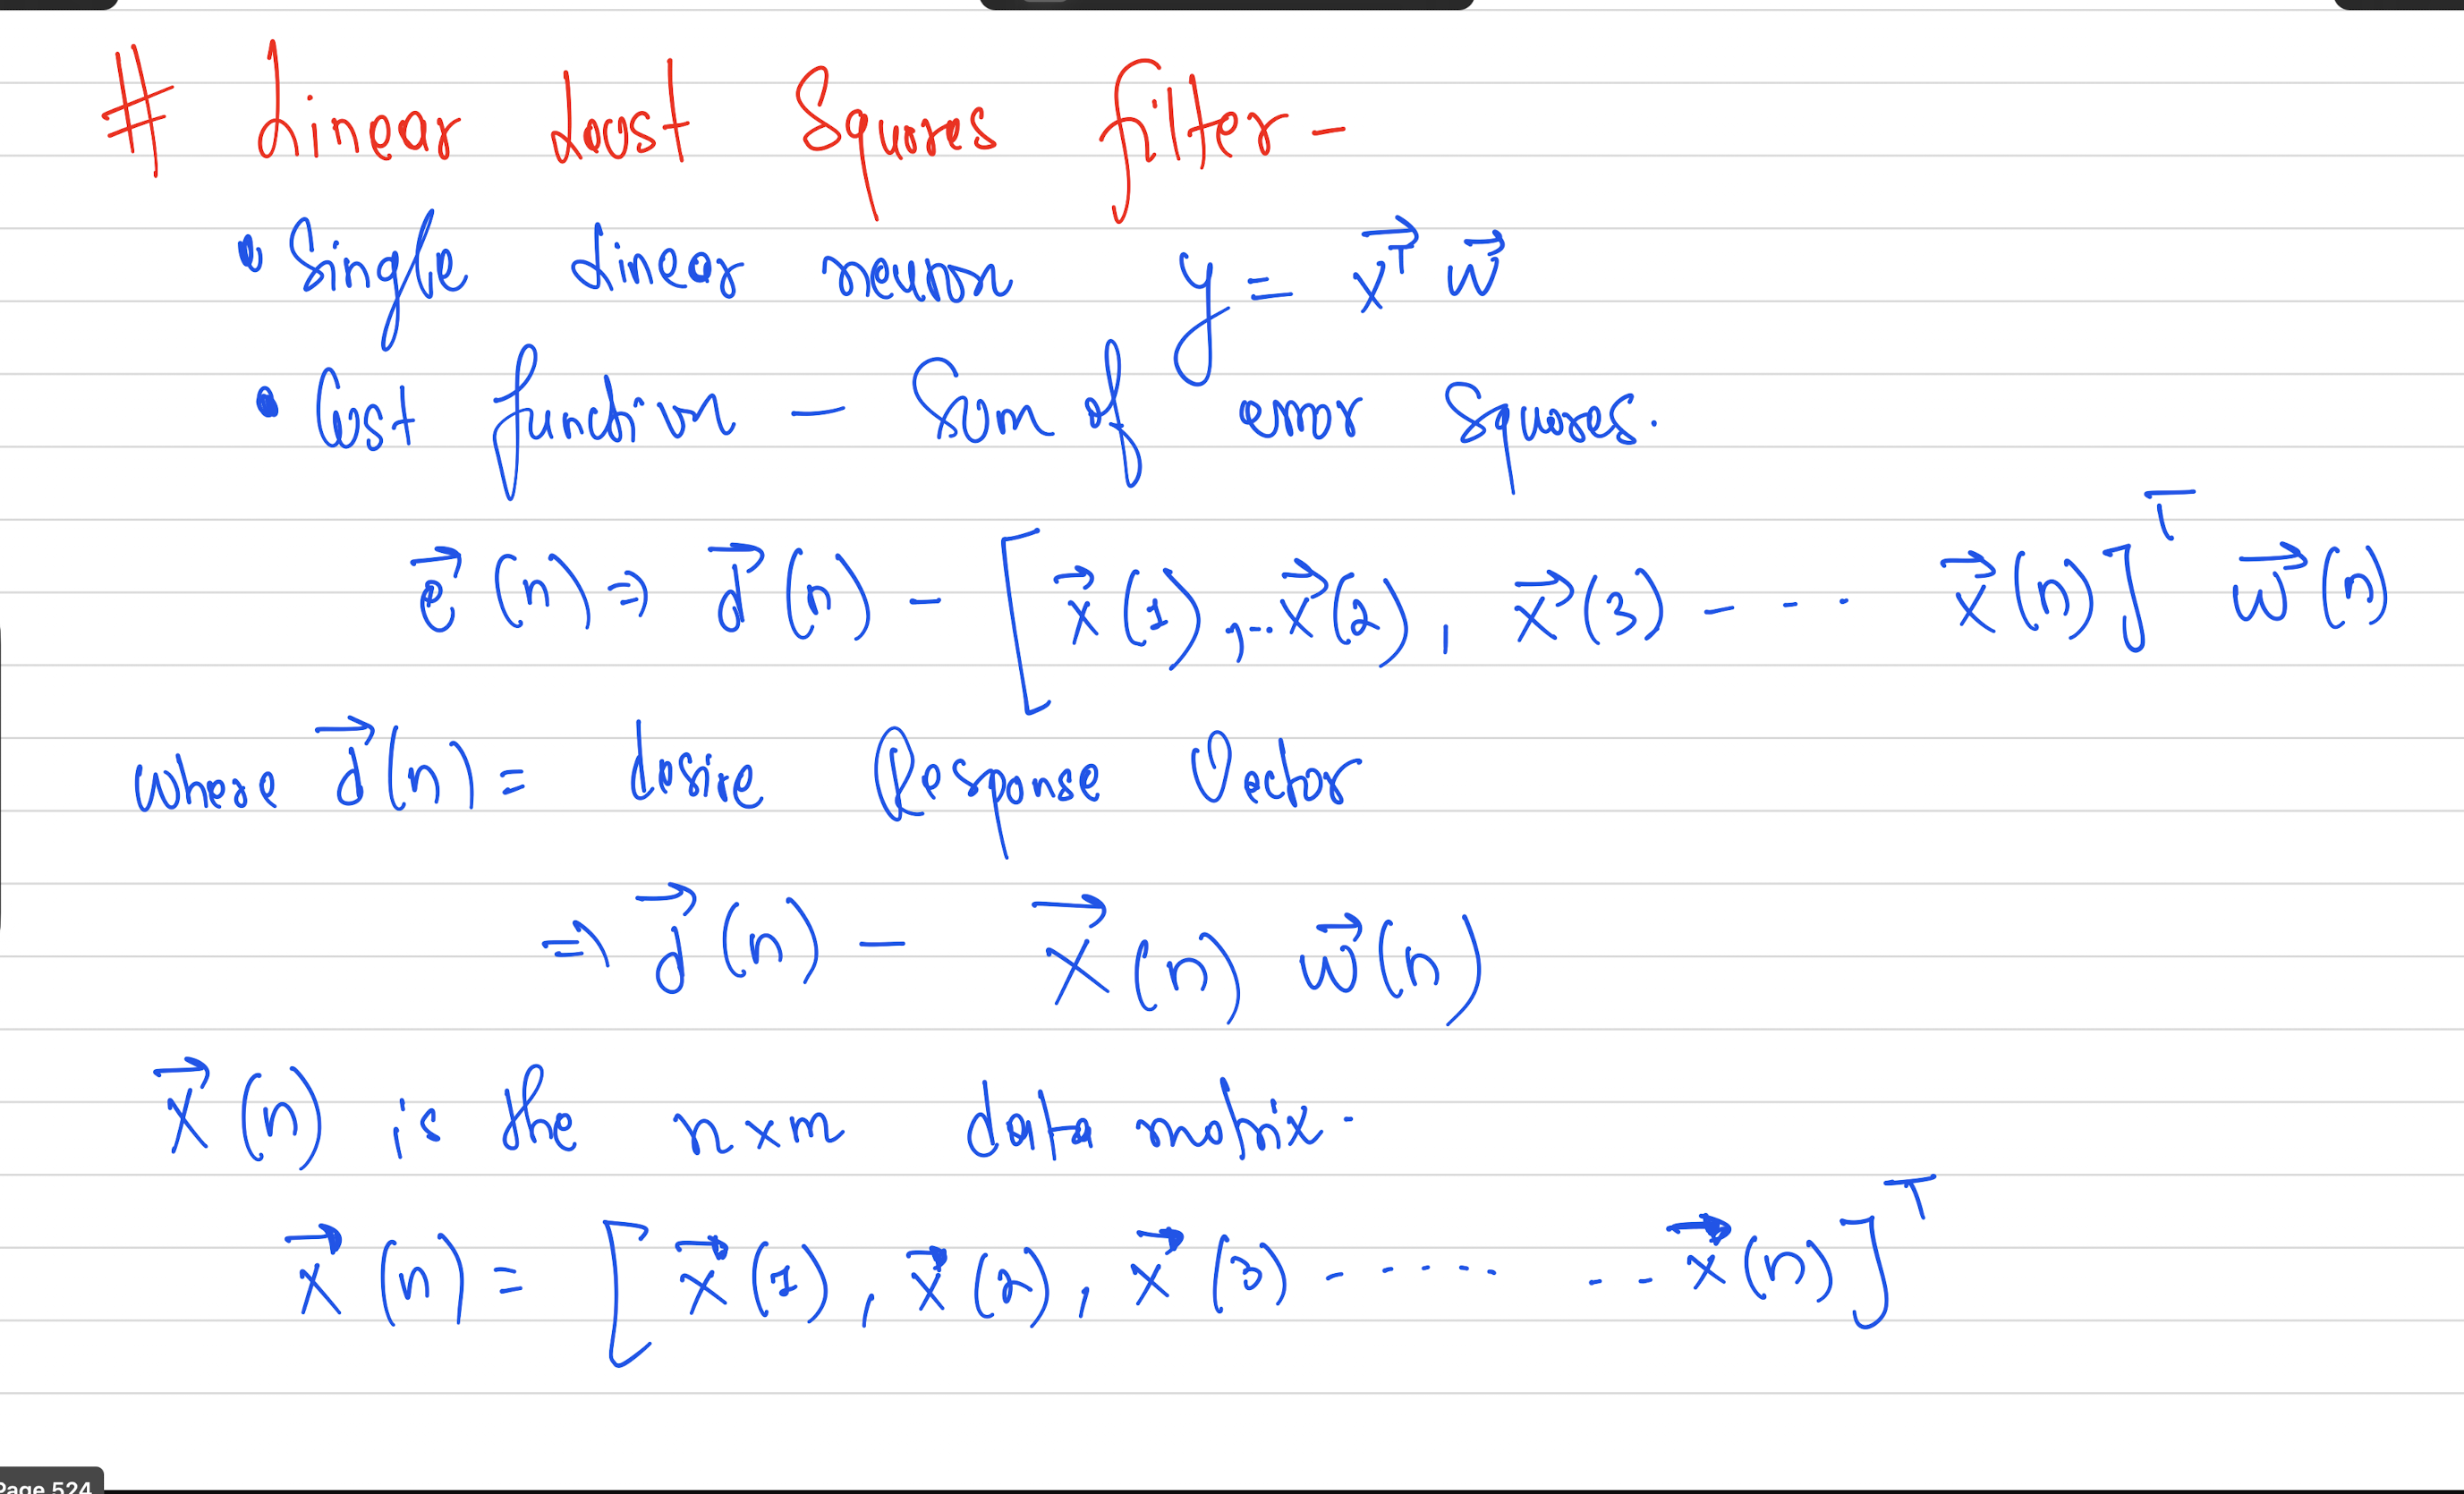 # Linear Least Square filter -
• Single Linear neuron y = x⃗ᵀ w⃗
• Cost function - Sum of error Squares.
e⃗(n) ⇒ d⃗(n) - [x⃗(1), ..x⃗(2), x⃗(3) - - - x⃗(n)]ᵀ w⃗(n)
where d⃗(n) = desire Response Vector
⇒ d⃗(n) - X⃗(n) w⃗(n)
X⃗(n) is the n×m data matrix.
X⃗(n) = [x⃗(1), x⃗(2), x⃗(3) - - - - - - x⃗(n)]ᵀ
Page 524